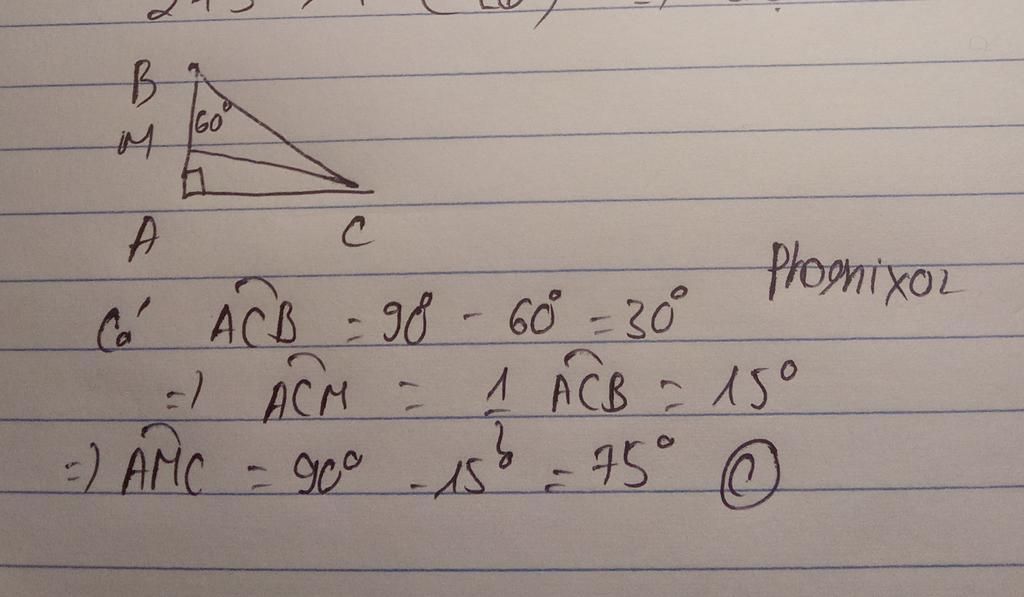 B
60°
M
A
C
Phoenixoz
Có ACB = 90° - 60° = 30°
=) ACM = 1/2 ACB = 15°
=) AMC = 90° - 15° = 75° C